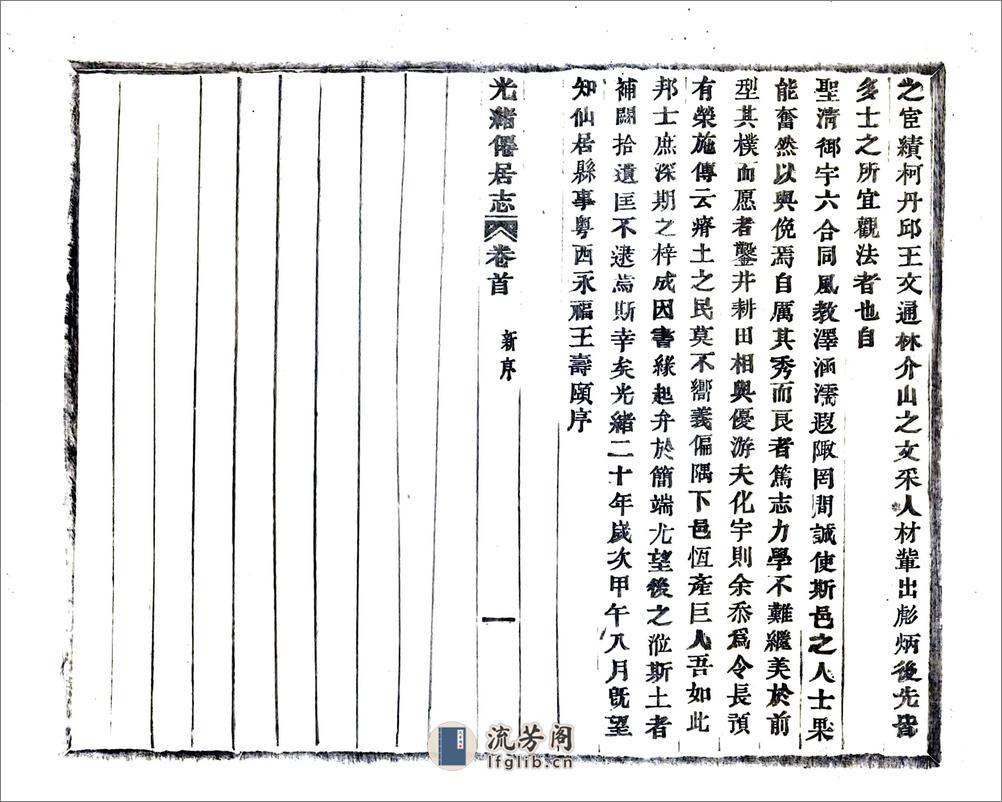 之宦績柯丹邱王文通林介山之文采人材輩出彪炳後先皆
多士之所宜觀法者也自
聖清御宇六合同風教澤涵濡遐陬罔間誠使斯邑之人士果
能奮然以興俛焉自厲其秀而良者篤志力學不難繼美於前
型其樸而愿者鑿井耕田相與優游夫化宇則余忝爲令長預
有榮施傳云瘠土之民莫不嚮義偏隅下邑恆產巨人吾如此
邦士庶深期之梓成因書緣起弁於簡端尤望後之涖斯土者
補闕拾遺匡不逮焉斯幸矣光緒二十年歲次甲午八月既望
知仙居縣事粵西永福王壽頤序
光緒僊居志 卷首 新序 一
流芳阁
lfglib.cn